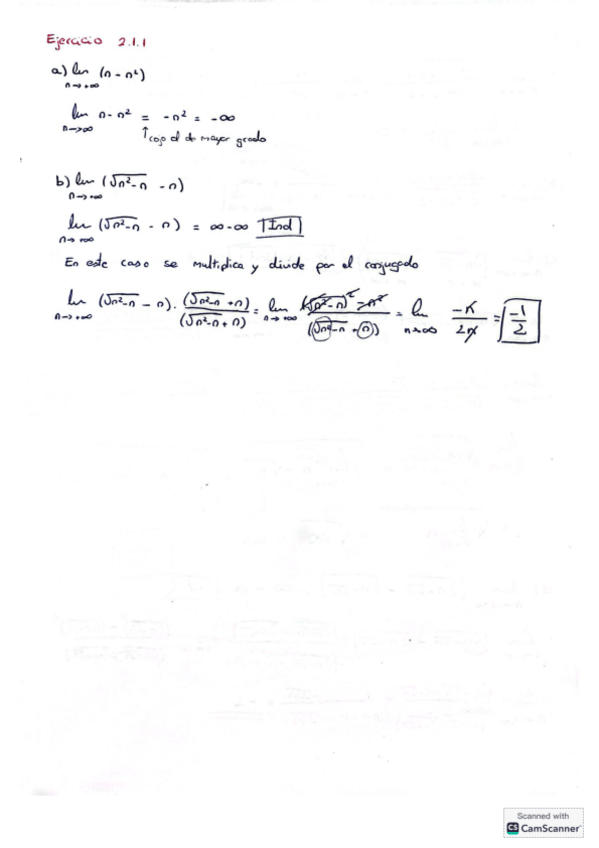 Ejercicio 2.1.1
a) lim (n - n²)
n→+∞
lim n - n² = -n² = -∞
n→∞
↑ cojo el de mayor grado
b) lim (√n²-n - n)
n→+∞
lim (√n²-n - n) = ∞-∞ Ind
n→+∞
En este caso se multiplica y divide por el conjugado
lim (√n²-n - n) · (√n²-n + n)/(√n²-n + n) = lim (√n²-n)² - n²/(√n²-n + n) = lim -n/2n = -1/2
n→+∞ n→+∞ n→∞
Scanned with
CS CamScanner